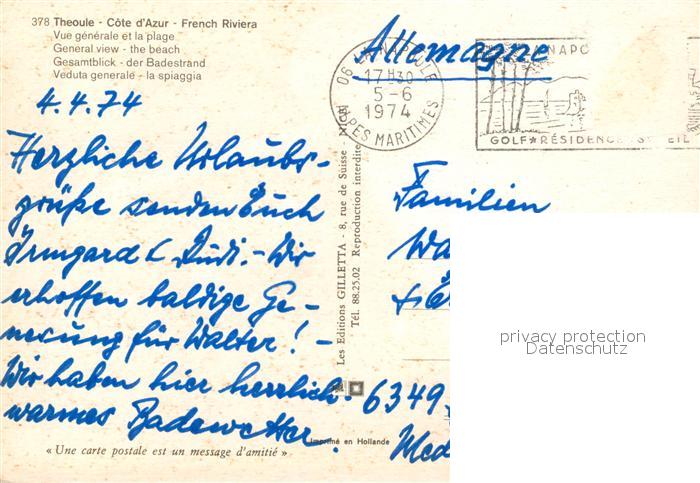 378 Theoule - Côte d'Azur - French Riviera
Vue générale et la plage
General view - the beach
Gesamtblick - der Badestrand
Veduta generale - la spiaggia
Allemagne
06
17H30
5-6
1974
ALPES MARITIMES
GOLF★RÉSIDENCE
4.4.74
Herzliche Urlaubs-
grüße senden Euch
Irmgard & Rudi. - Wir
erhoffen baldige Ge-
nesung für Walter! -
Wir haben hier herrlich
warmes Badewetter.
Les Editions GILLETTA - 8, rue de Suisse - NICE
Tél. 88.25.02 Reproduction interdite
Familien
6349
Imprimé en Hollande
« Une carte postale est un message d'amitié »
privacy protection
Datenschutz